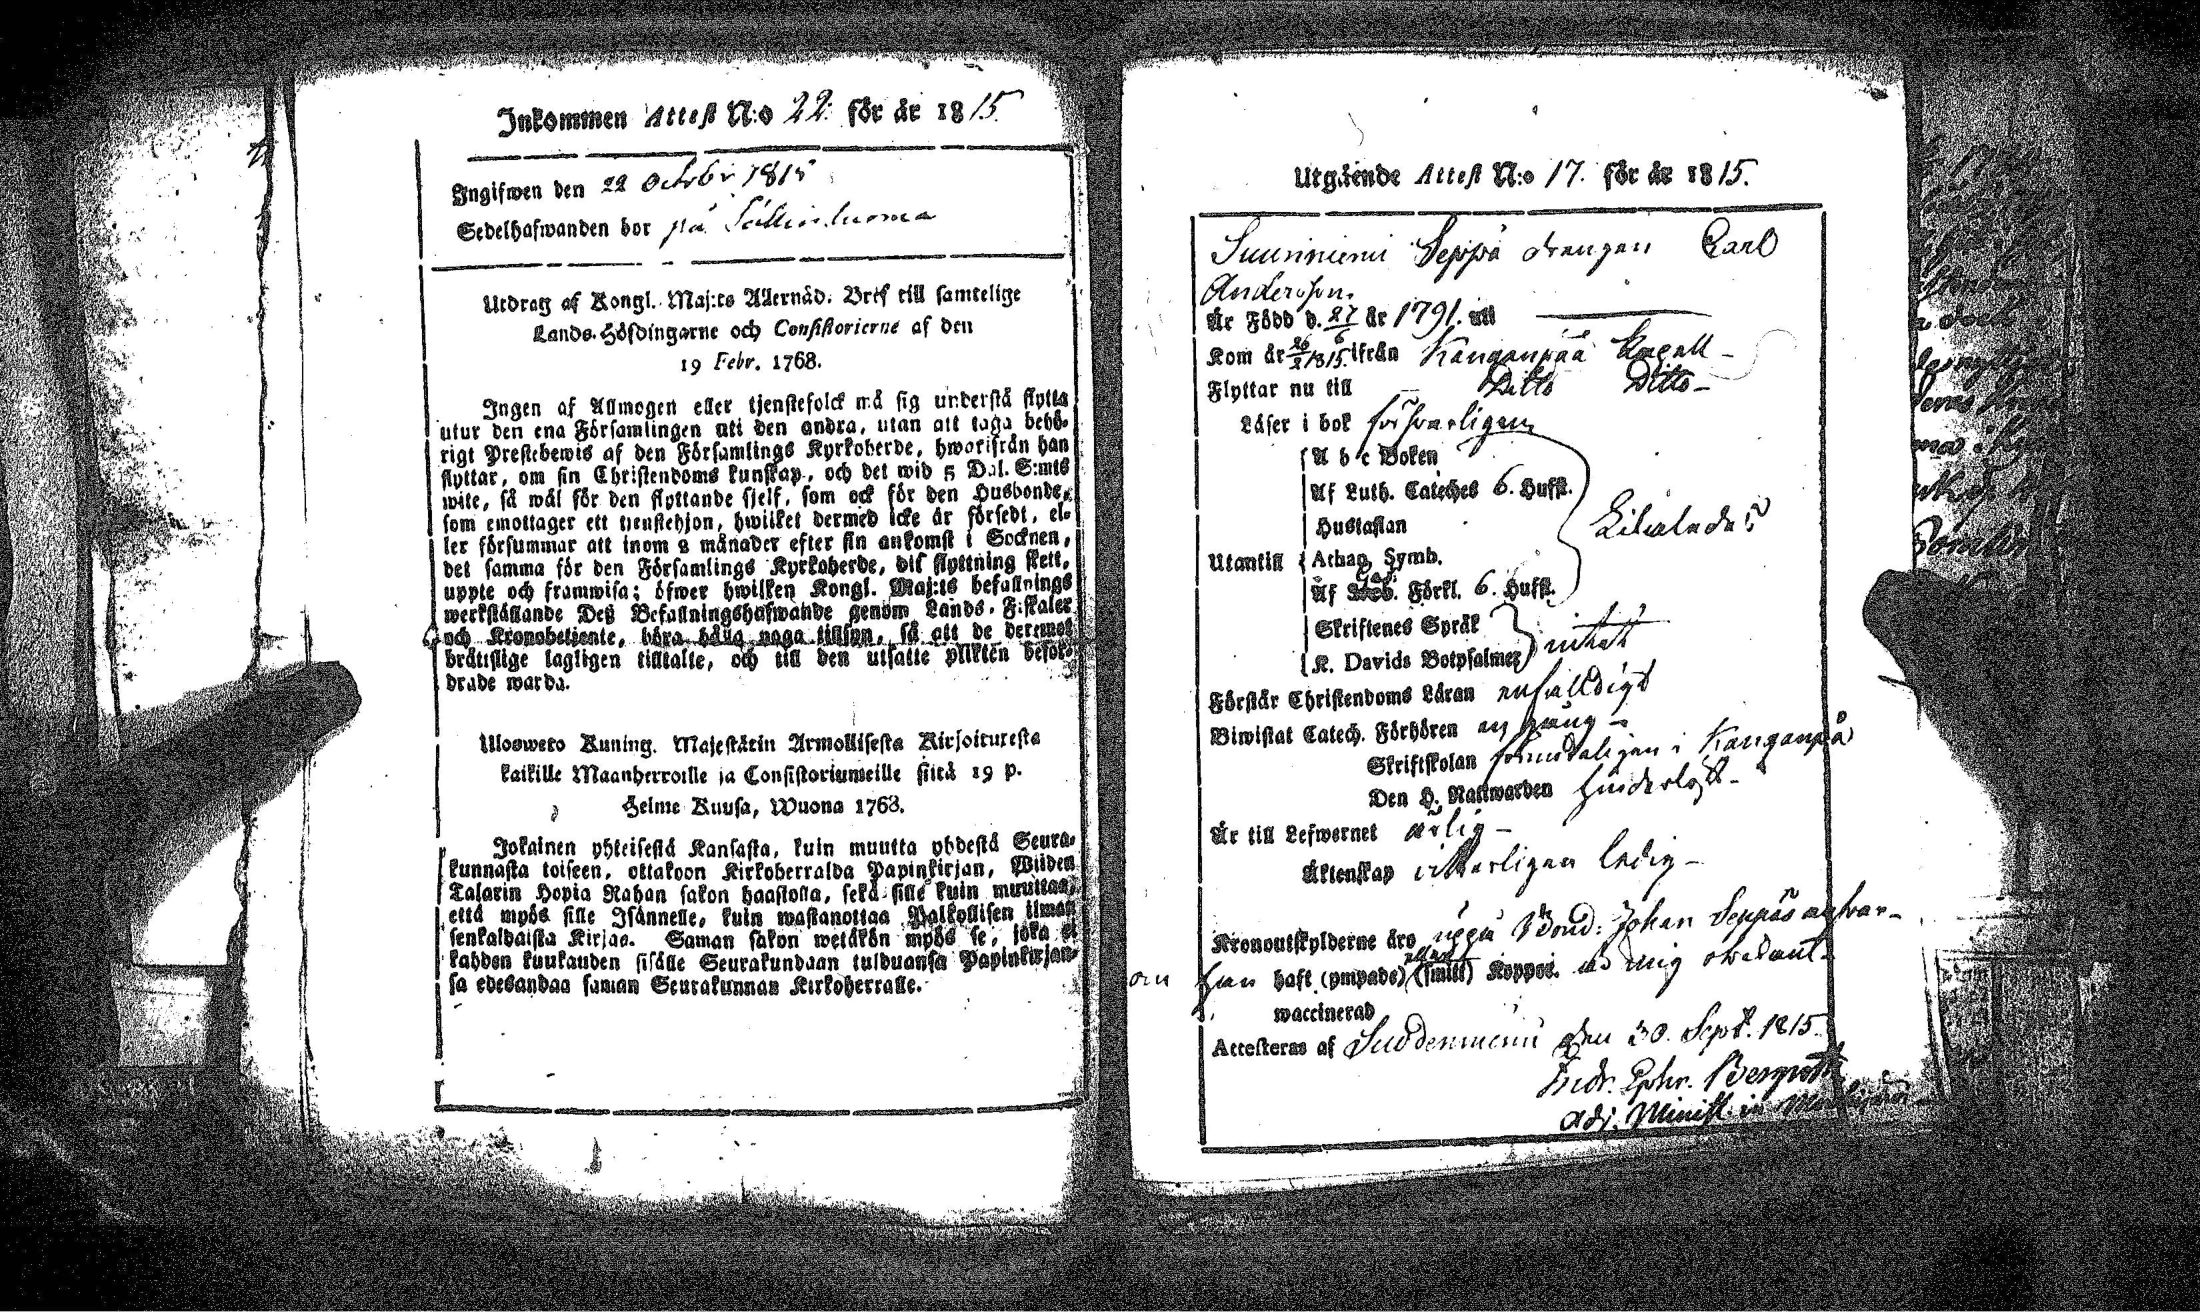 Inkommen Attest N:o 22. för år 1815
Ingifwen den 22 Octobr 1815
Sedelhafwanden bor på
Utdrag af Kongl. Maj:ts Allernåd. Bref till samtelige
Lands-Höfdingarne och Consistorierne af den
19 Febr. 1768.
Ingen af Allmogen eller tjenstefolck må sig understå flytta
utur den ena Församlingen uti den andra, utan att taga behö-
rigt Prestebewis af den Församlings Kyrkoherde, hworifrån han
flyttar, om sin Christendoms kunskap, och det wid 5 Dal. S:mts
wite, så wäl för den flyttande sjelf, som ock för den Husbonde,
som emottager ett tienstehjon, hwilket dermed icke är försedt, el-
ler försummar att inom 2 månader efter sin ankomst i Socknen,
det samma för den Församlings Kyrkoherde, dit flyttning skett,
uppte och framwisa; öfwer hwilken Kongl. Maj:ts befallnings
werkställande Deß Befallningshafwande genom Lands-Fiskaler
och Kronobetjente, böra hålla noga tillsyn, så att de deremot
bråtislige lagligen tilltalte, och till den utsatte plikten befor-
drade warda.
Ulosweto Kuning. Majestätin Armollisesta Kirjoituresta
kaikille Maanherroille ja Consistoriumeille siitä 19 p.
Helme Kuusa, Wuona 1768.
Jokainen yhteisestä Kansasta, kuin muutta yhdestä Seura-
kunnasta toiseen, ottakoon Kirkoherralda Papinkirjan, Wiiden
Talarin Hopia Rahan sakon haastolla, sekä sille kuin muuttaa,
että myös sille Isännelle, kuin wastanottaa Palkollisen ilman
senkaldaista Kirjaa. Saman sakon wetäkön myös se, joka ei
kahden kuukauden sisälle Seurakundaan tulduansa Papinkirjan-
sa edesandaa saman Seurakunnan Kirkoherralle.
Utgående Attest N:o 17. för år 1815.
Suurniemi Seppä drengen Carl
Andersson.
Är Född d. 27/6 år 1791. uti
Kom år 26/2 1815. ifrån Kanganpää Kapell
Flyttar nu till Ditto Ditto
Läser i bok försvarligen
A b c Boken
Af Luth. Cateches 6. Hufst.
Hustaflan
Utantill Athan. Symb.
Af Förkl. 6. Hufst.
Skriftenes Språk
K. Davids Botpsalmer intett
Förstår Christendoms Läran enfalldigt
Biwistat Catech. Förhören en gång
Skriftskolan i Kanganpää
Den H. Nattwarden
Är till Lefwernet ärlig
Äktenskap ledig
Kronoutskylderne äro uppå Bond: Johan Seppäs ansvar
om han haft (ympade) (smitt) Koppor. är mig obekant.
waccinerad
Attesteras af Suodenniemi den 30. Sept. 1815.
Andr. Ephr. Bergroth
Adj. Minist. in